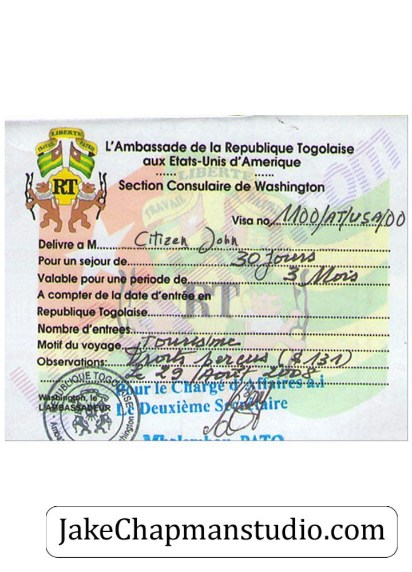 LIBERTE
TRAVAIL PATRIE
RT
L'Ambassade de la Republique Togolaise
aux Etats-Unis d'Amerique
Section Consulaire de Washington
Visa no. 1100/AT/USA/DO
Delivre a M Citizen John
Pour un sejour de 30 Jours
Valable pour une periode de 3 Mois
A compter de la date d'entrée en
Republique Togolaise
Nombre d'entrees
Motif du voyage Tourisme
Observations: Droits percus ($ 131)
le 29 Août 2008
Pour le Chargé d'Affaires a.i
Le Deuxième Secrétaire
Washington, le
L'AMBASSADEUR
JakeChapmanstudio.com